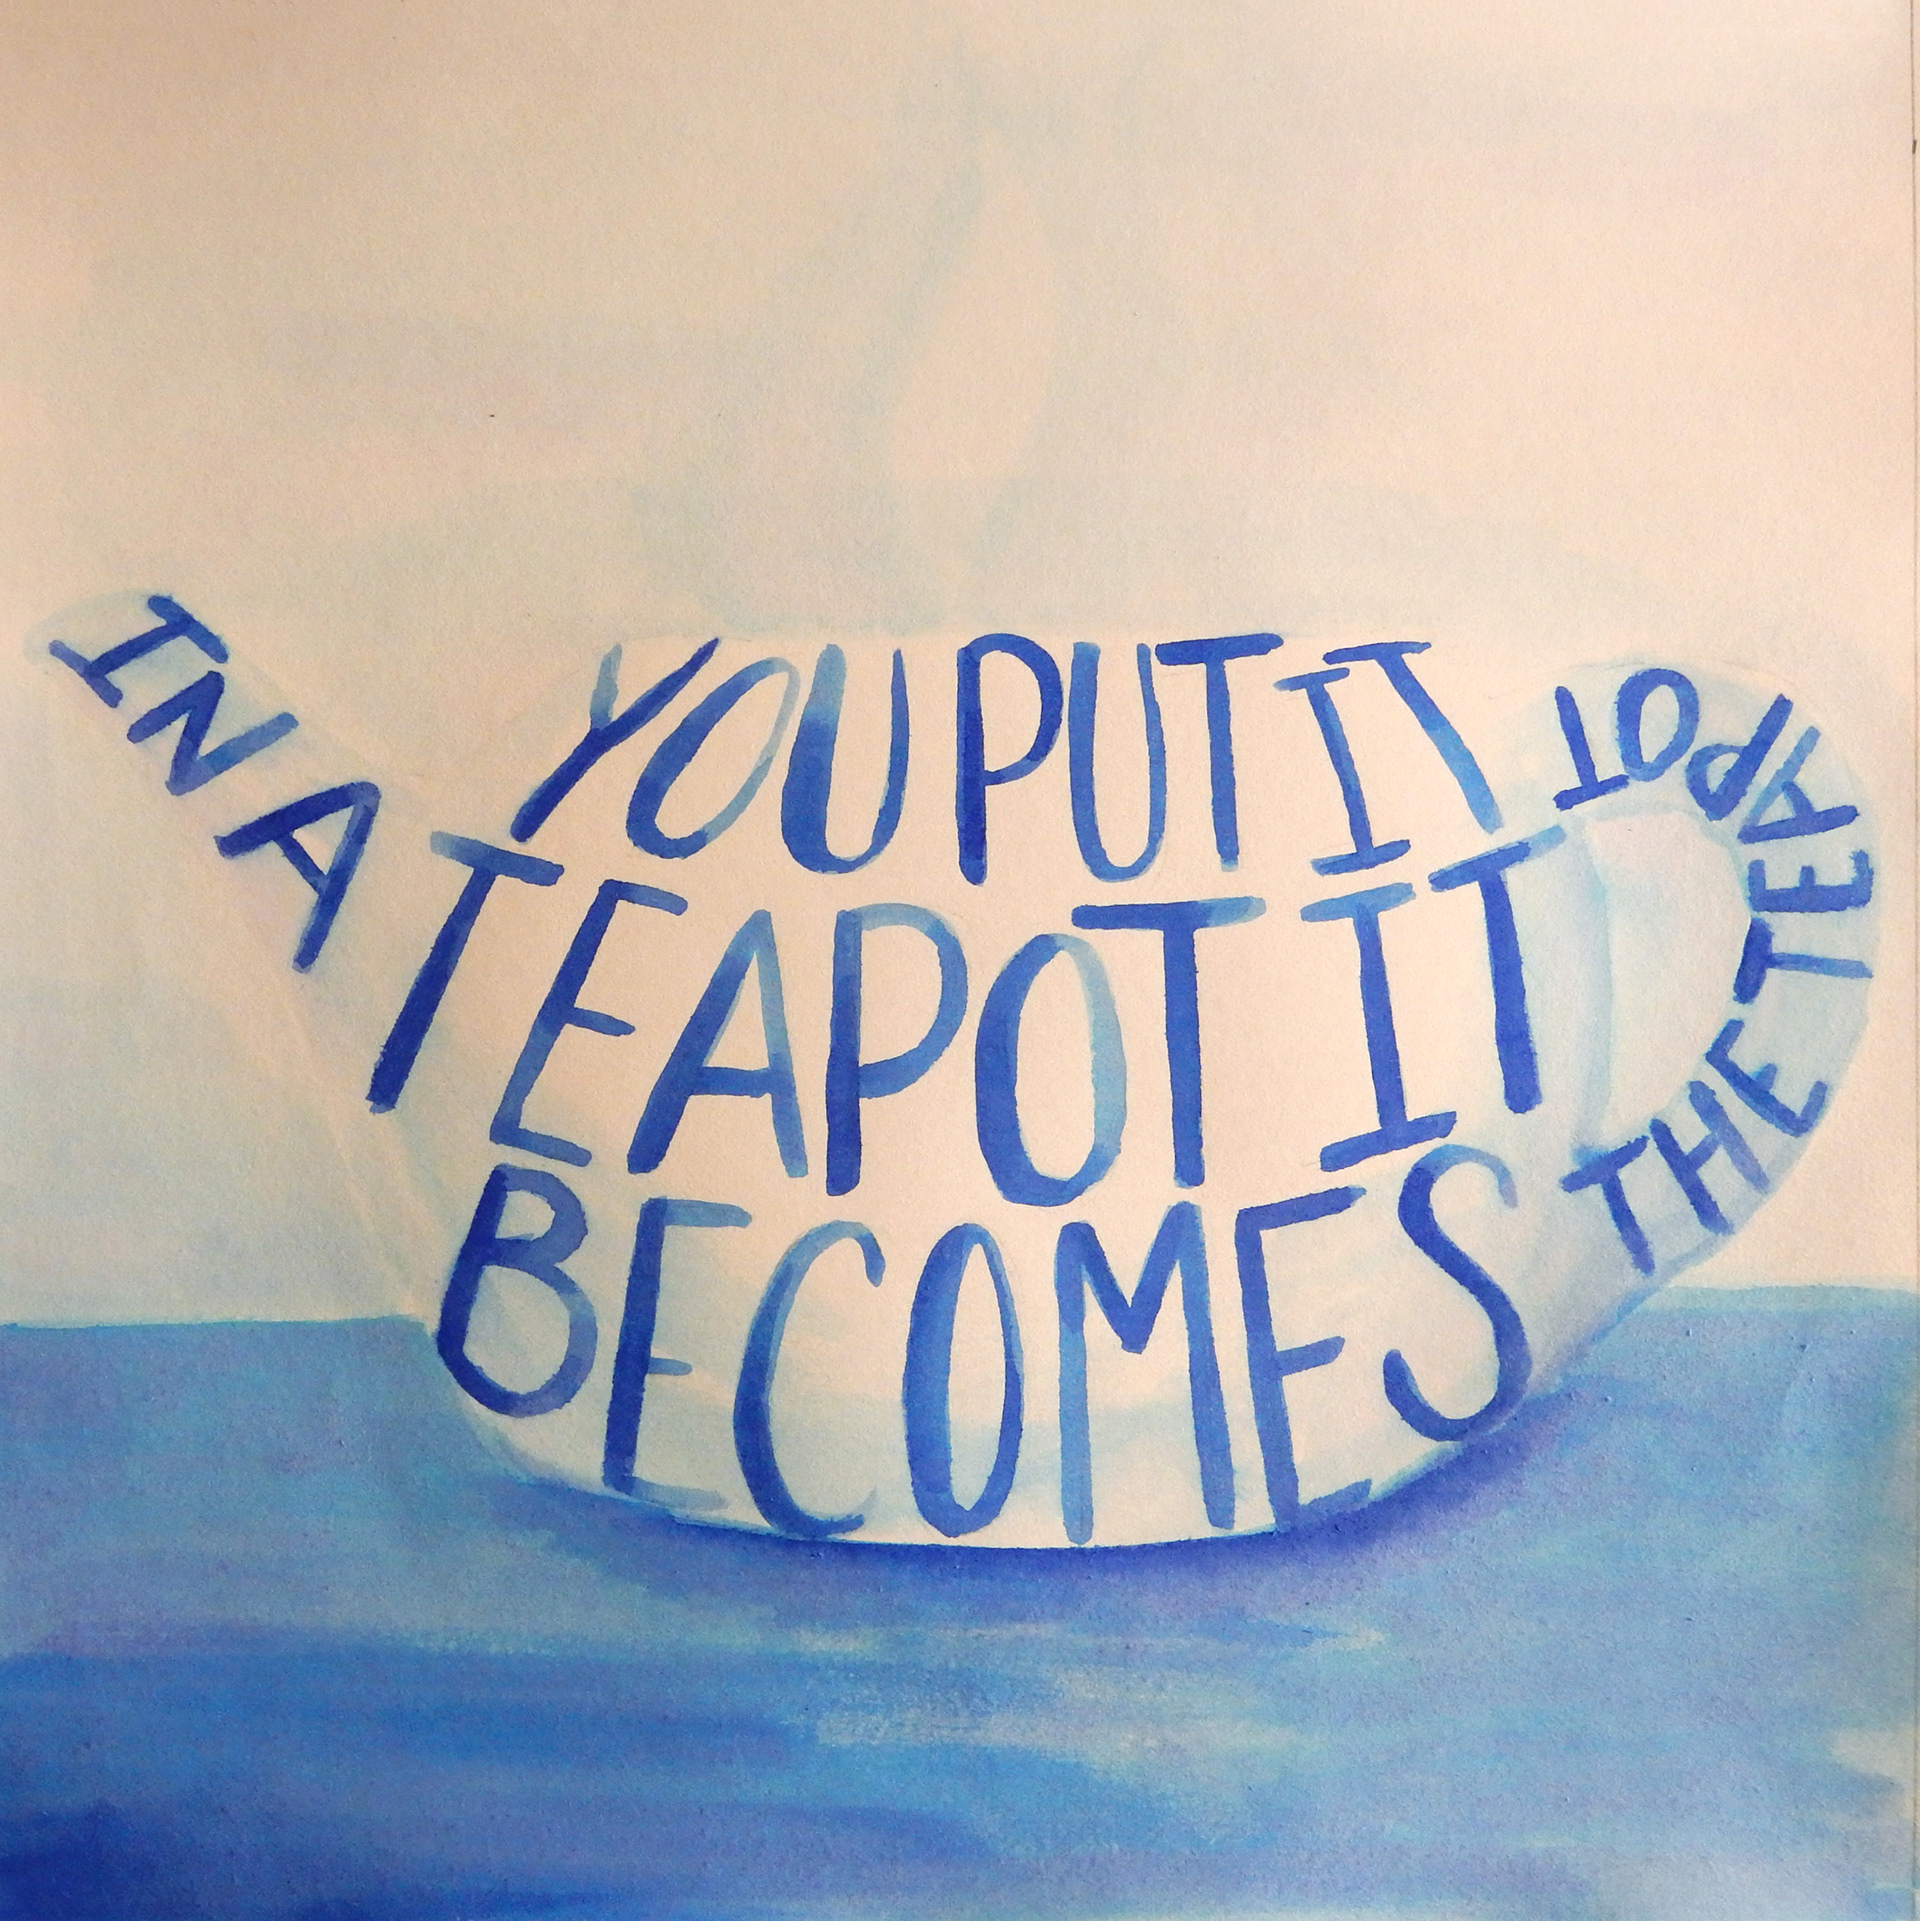 YOU PUT IT
IN A TEAPOT IT
BECOMES
THE TEAPOT